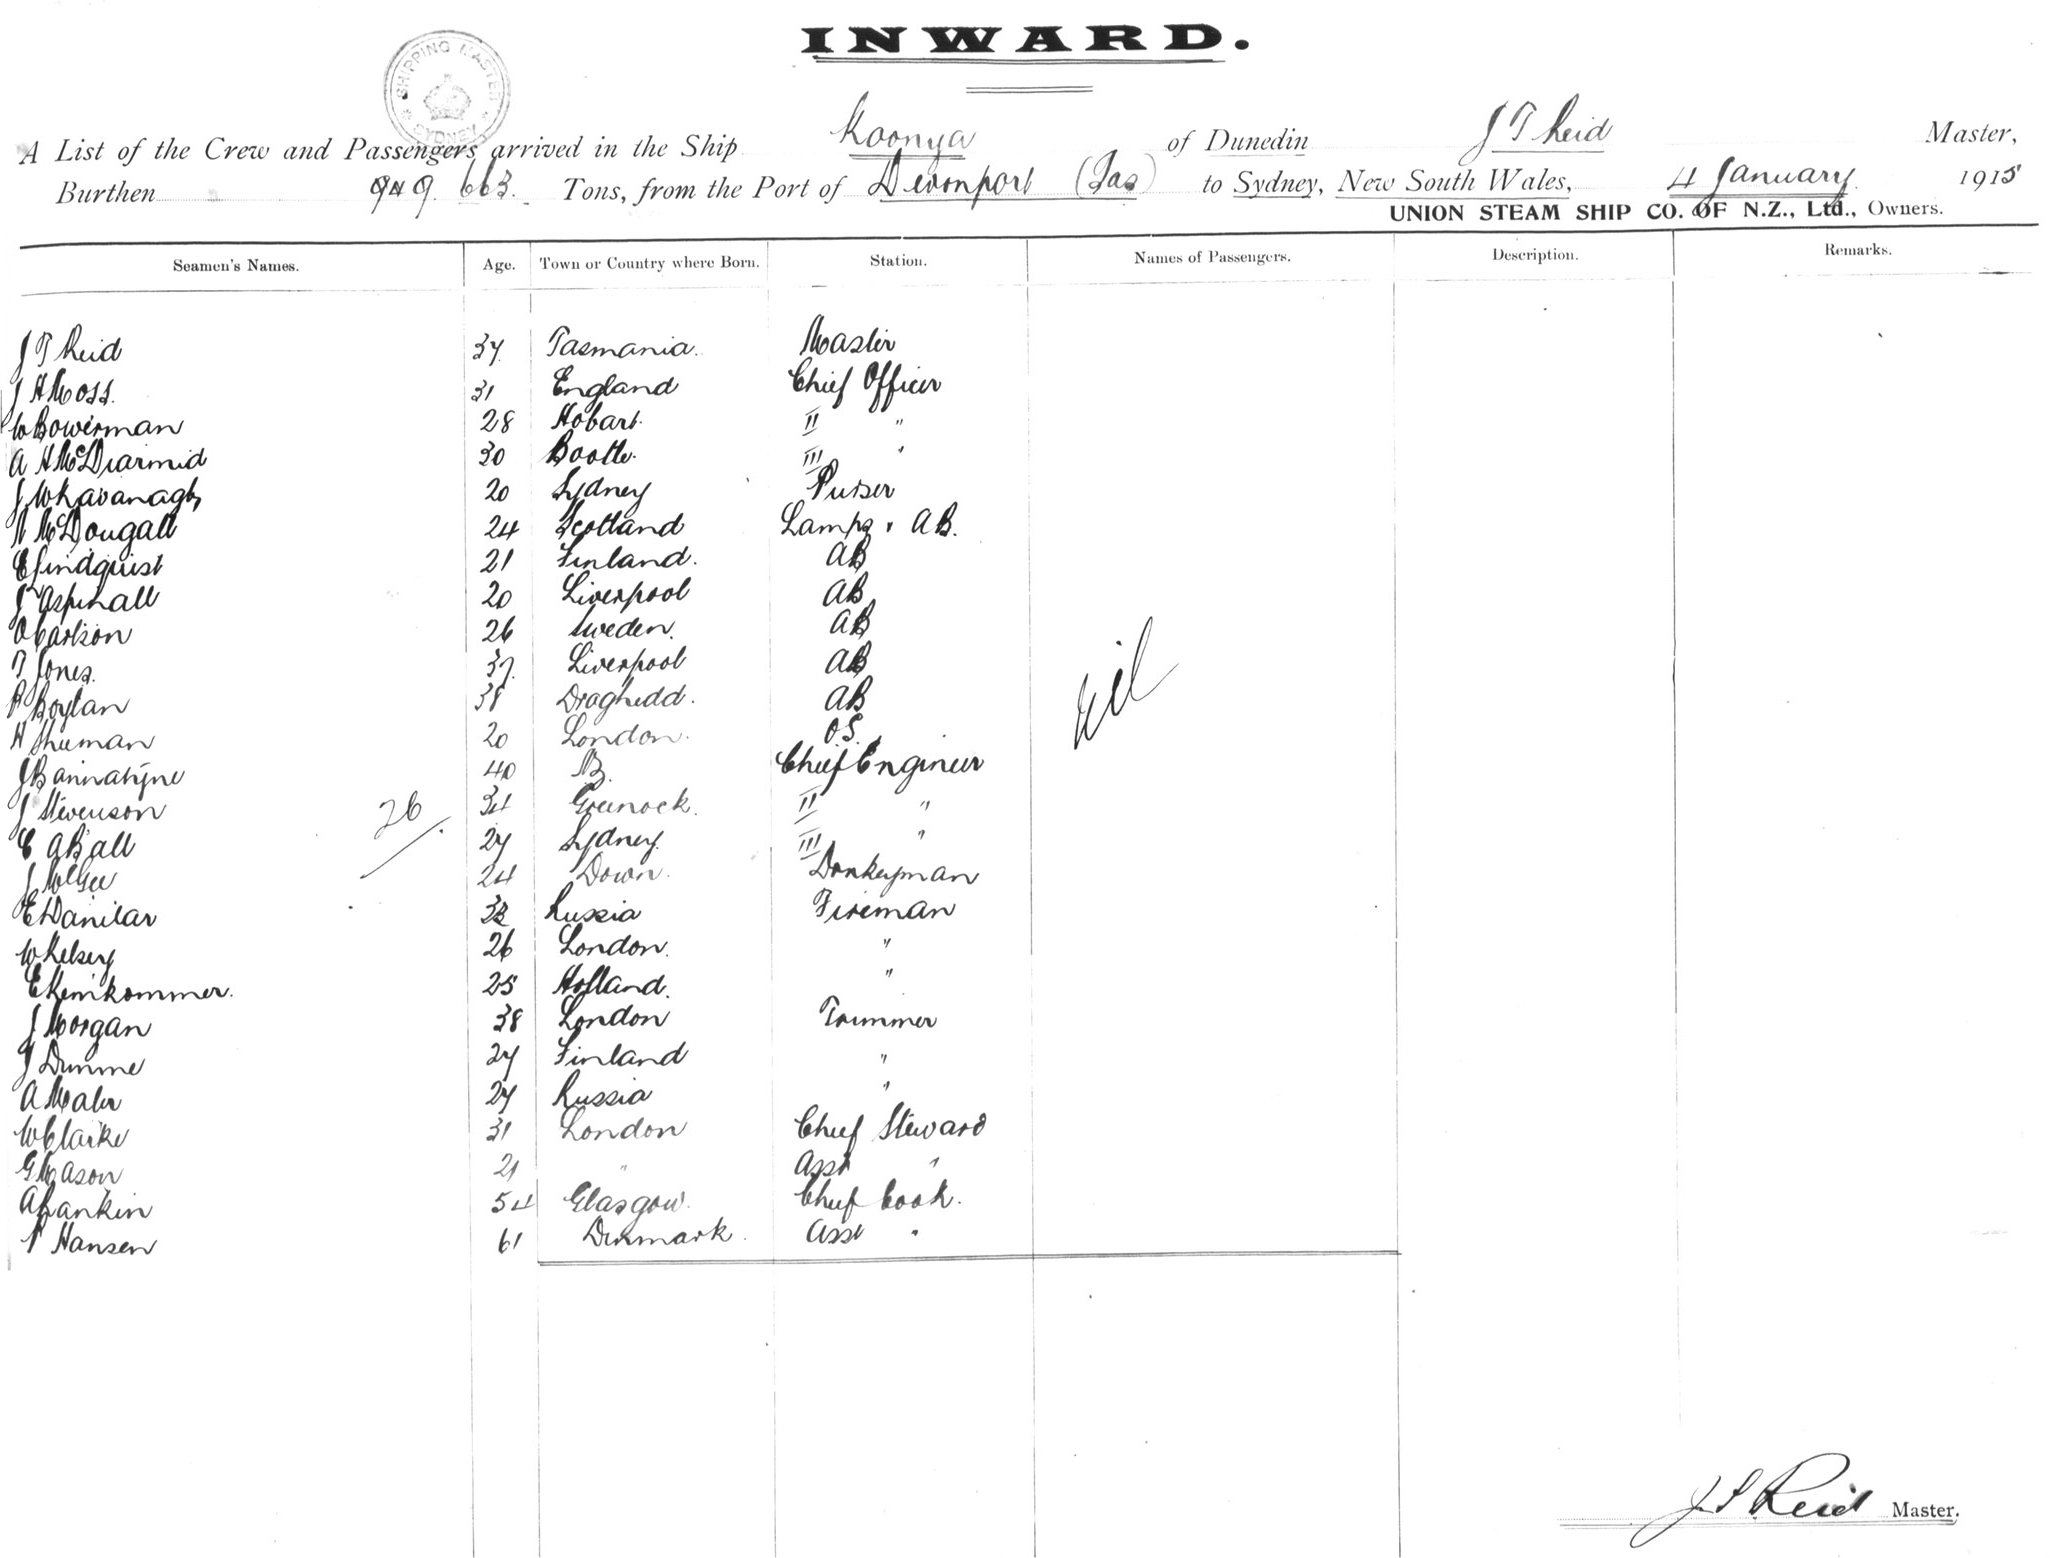 INWARD.
SHIPPING MASTER SYDNEY
A List of the Crew and Passengers arrived in the Ship Koonya of Dunedin J T Reid Master,
Burthen 949 663. Tons, from the Port of Devonport (Tas) to Sydney, New South Wales, 4 January 1915
UNION STEAM SHIP CO. OF N.Z., Ltd., Owners.
Seamen's Names. Age. Town or Country where Born. Station. Names of Passengers. Description. Remarks.
J T Reid 37 Tasmania. Master
J H Moss. 31 England Chief Officer
W Bowerman 28 Hobart. II "
A H McDiarmid 30 Bootle. III "
J W Kavanagh 20 Sydney Purser
N McDougall 24 Scotland Lamps & AB.
E Lindquist 21 Finland. AB
J Aspinall 20 Liverpool AB
O Carlson 26 Sweden. AB
T Jones. 37. Liverpool AB
P Boylan 38 Droghedd. AB
H Shuman 20 London. OS.
J Bannatyne 40 NZ. Chief Engineer
J Stevenson 34 Greenock. II "
C A Ball 27 Sydney. III "
J McGee 24 Down. Donkeyman
E Danilar Russia Fireman
W Kelsey 26 London. "
E Remkommer. 25 Holland. "
J Morgan 38 London Trimmer
J Dumme 27 Finland "
A 27 Russia "
W Clarke 31 London Chief Steward
G Mason 21 " Asst "
A Rankin 54 Glasgow. Chief Cook.
P Hansen 61 Denmark. Asst "
26
Nil
J T Reid Master.